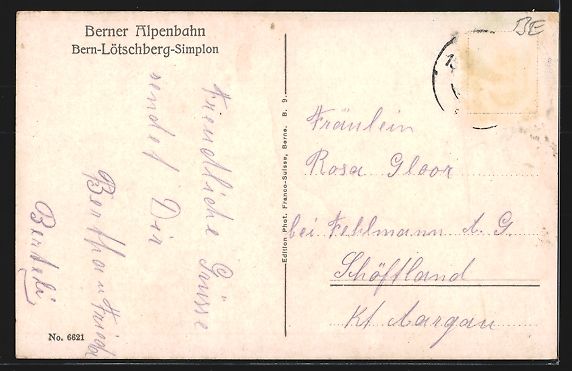 Berner Alpenbahn
Bern-Lötschberg-Simplon
BE
Freundliche Grüsse
sendet Dir
Bertha u Frieda
No. 6621
Edition Phot. Franco-Suisse, Berne. B. 9.
Fräulein
Rosa Gloor
bei Fehlmann A. G.
Schöftland
Kt Aargau